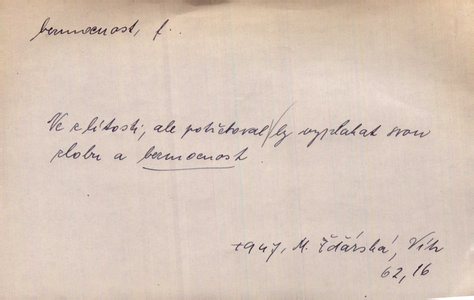 bezmocnost, f.
Ve zlítosti, ale potřeboval by vyplakat svou
zlobu a bezmocnost.
1947, M. Žďárská,
62, 16